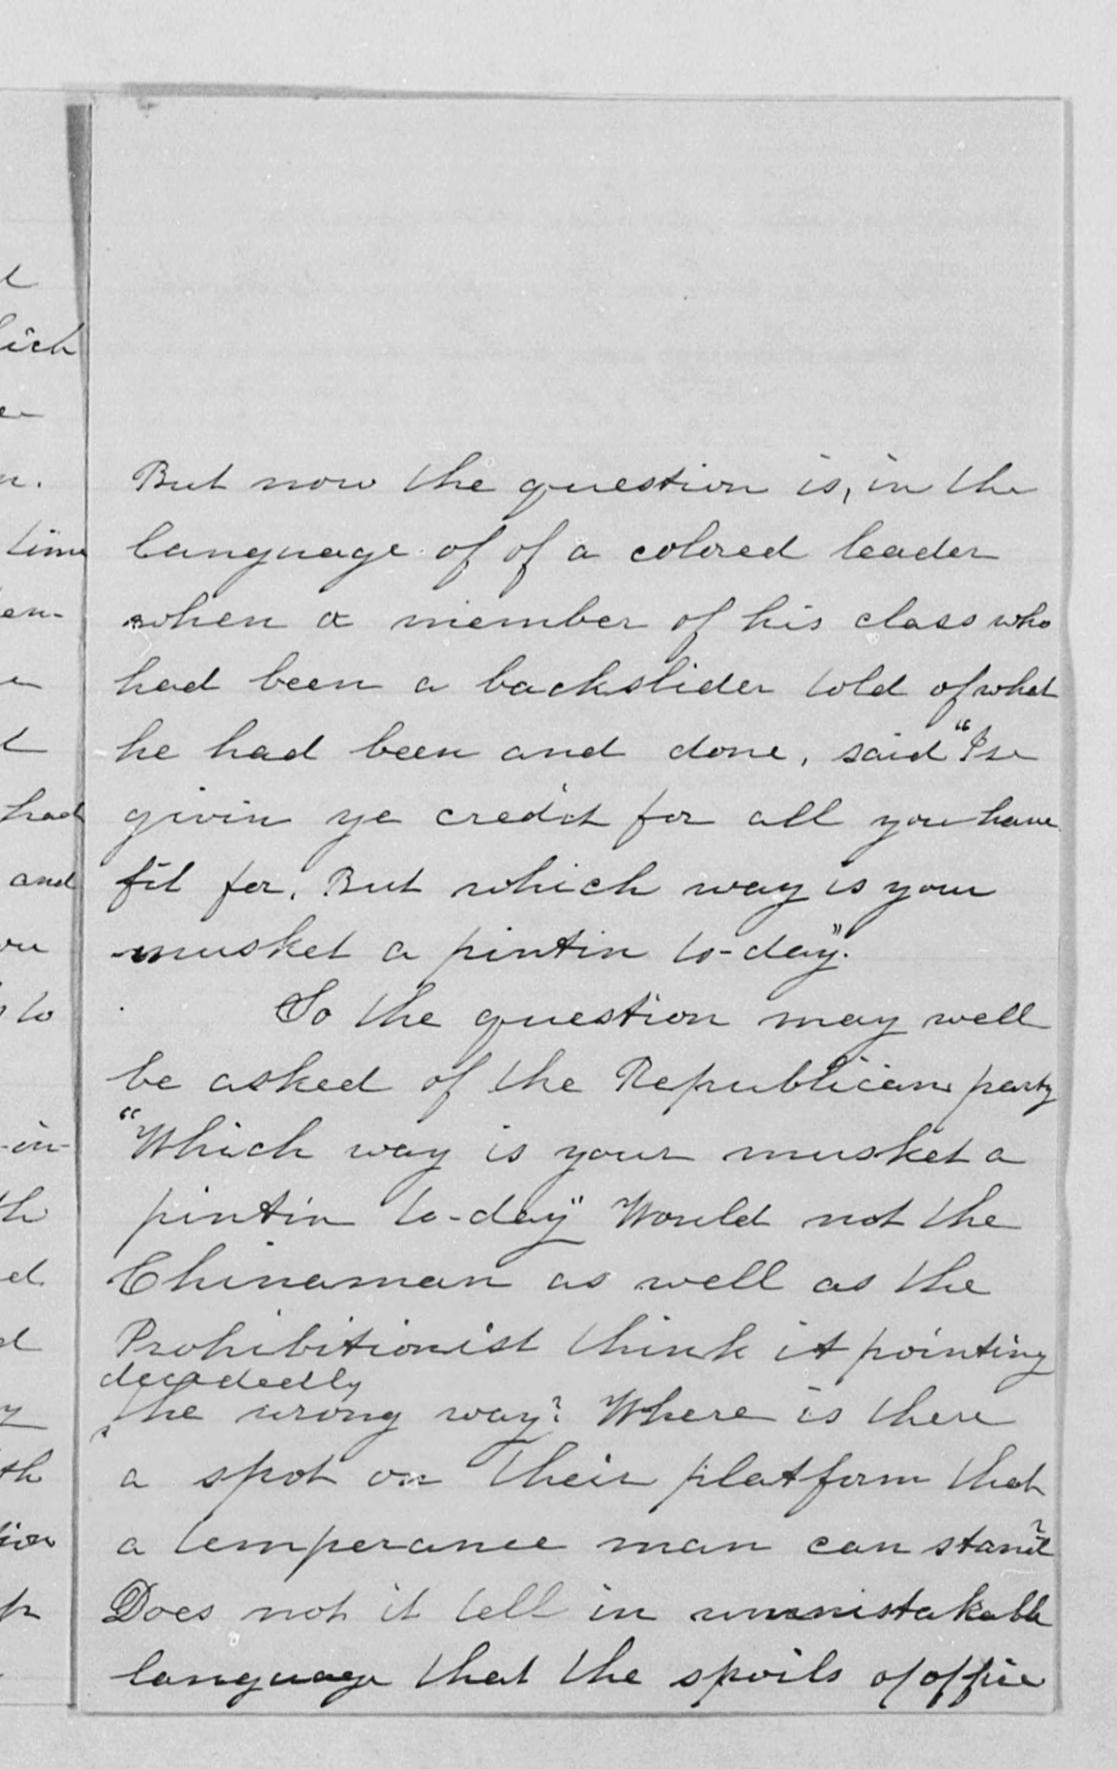 But now the question is, in the
language of of a colored leader
when a member of his class who
had been a backslider told of what
he had been and done, said "I'se
givin ye credit for all you have
fit for. But which way is your
musket a pintin to-day".
So the question may well
be asked of the Republican party
"Which way is your musket a
pintin to-day" Would not the
Chinaman as well as the
Prohibitionist think it pointing
decadeedly
the wrong way? Where is there
a spot on their platform that
a temperance man can stand?
Does not it tell in unmistakable
language that the spoils of office